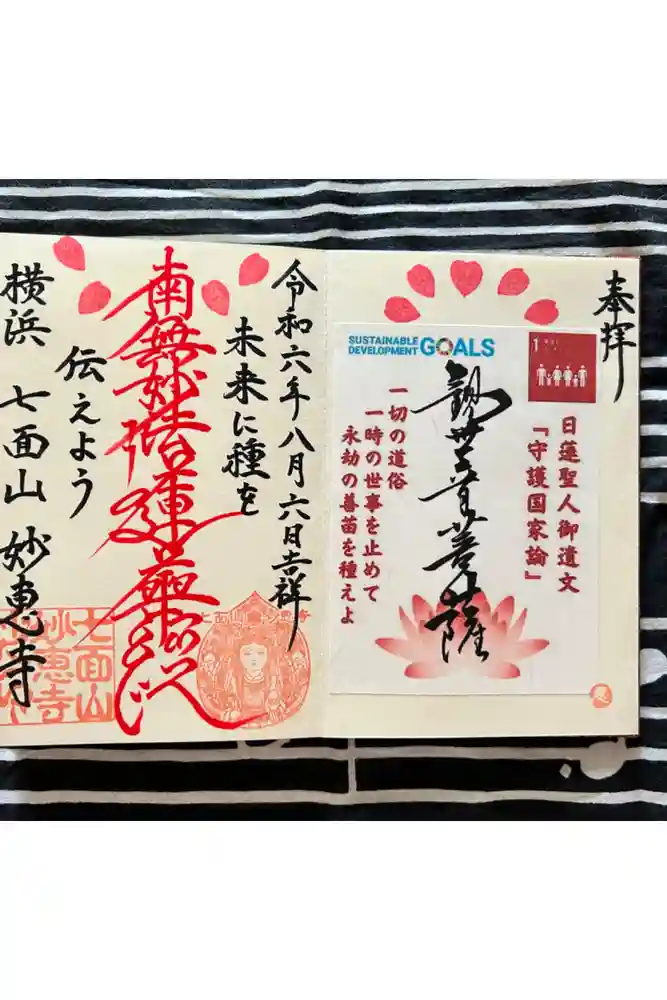 奉拝
SUSTAINABLE
DEVELOPMENT GOALS
1
日蓮聖人御遺文
「守護国家論」
観世音菩薩
一切の道俗
一時の世事を止めて
永劫の善苗を種えよ
令和六年八月六日吉祥
未来に種を
南無妙法蓮華経
伝えよう
横浜 七面山 妙恵寺
七面山
妙恵寺